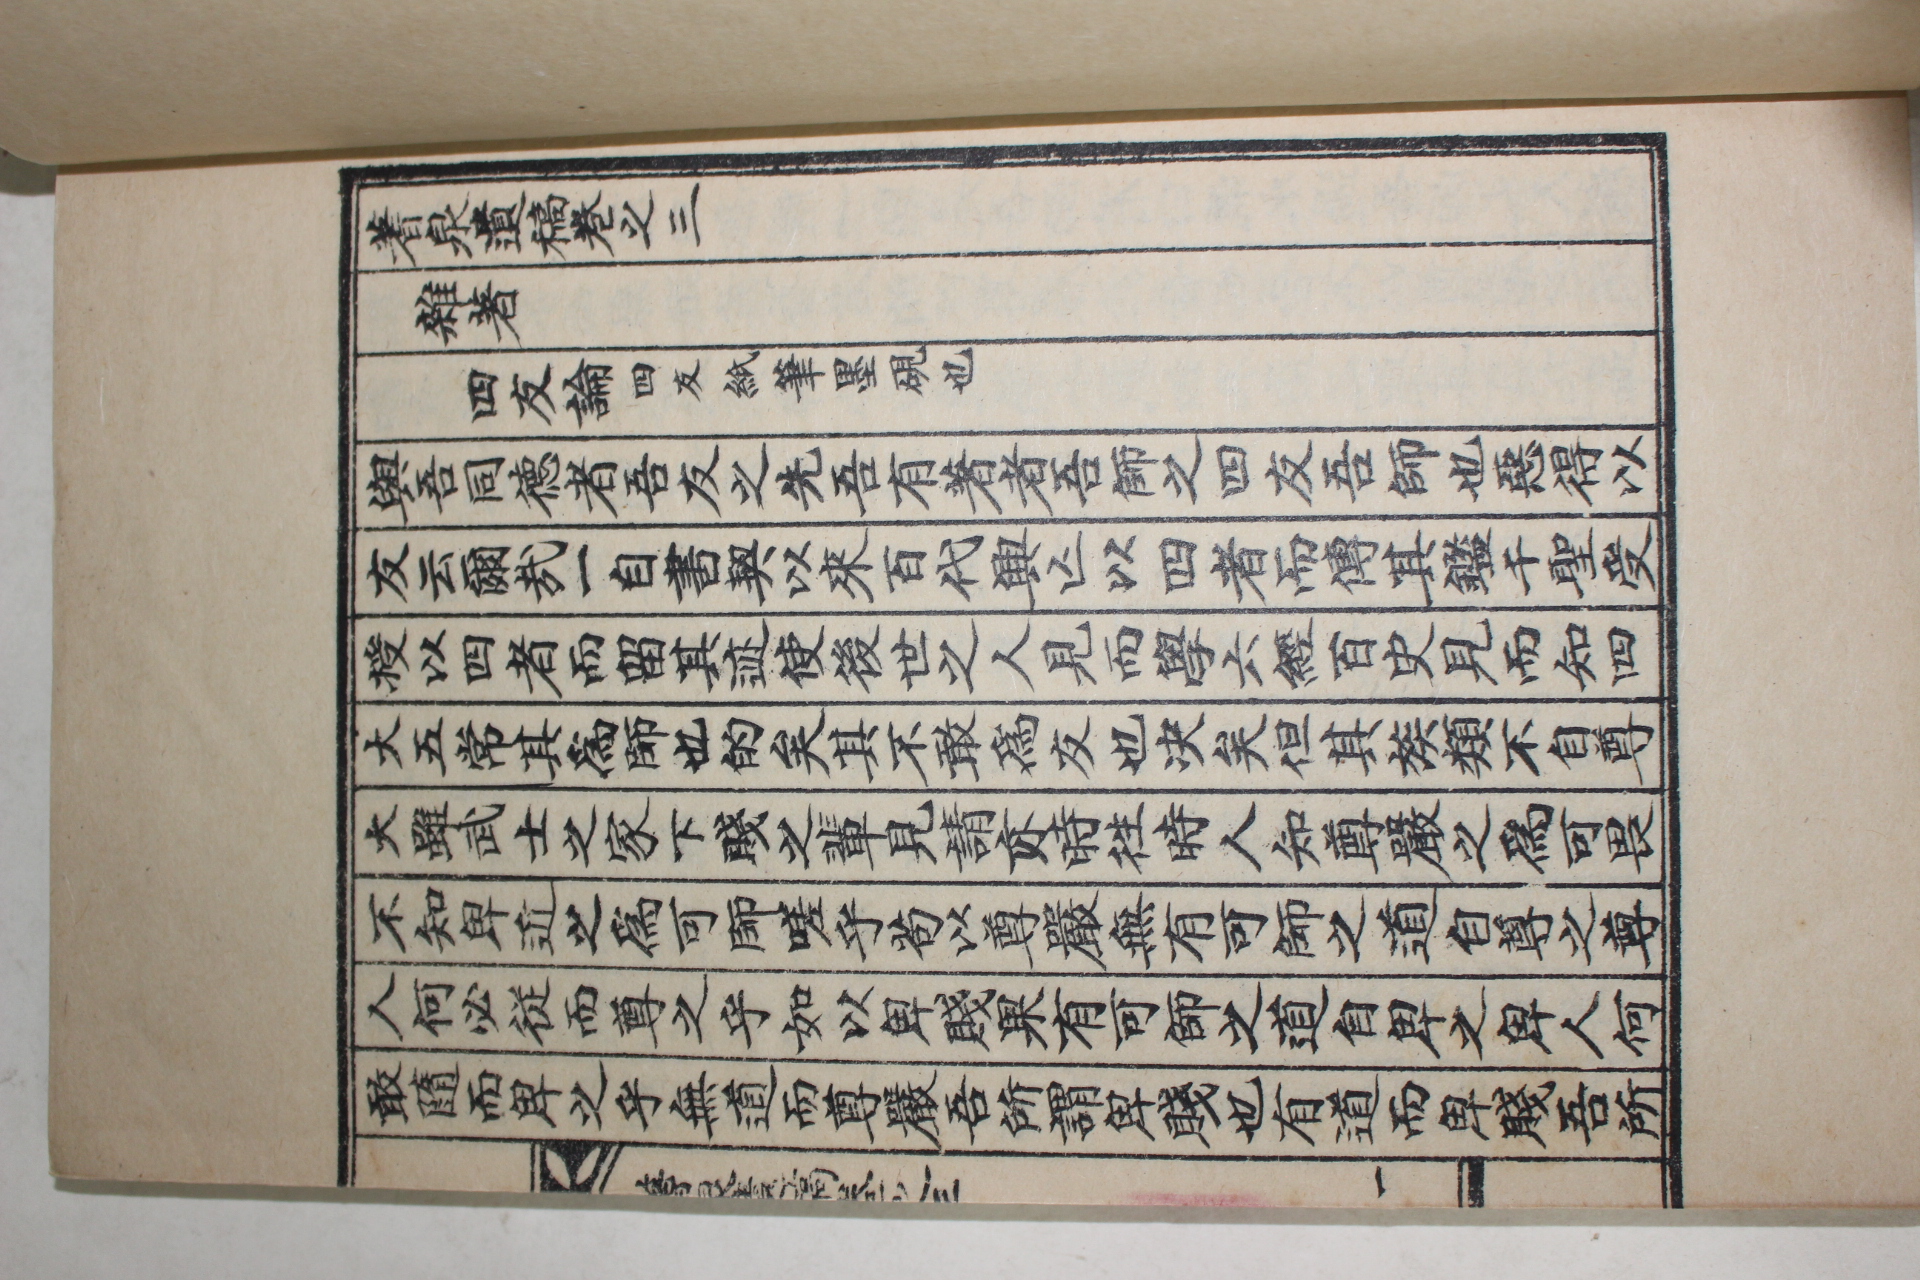 蓍泉遺稿卷之三
雜著
四友論四友紙筆墨硯也
與吾同德者吾友之先吾有著者吾師之四友吾師也惡得以
友云爾哉一自書契以來百代興亡以四者而傳其鑑千聖受
授以四者而留其迹使後世之人見而學六經百史見而知四
大五常其爲師也的矣其不敢爲友也决矣但其族類不自尊
大雖武士之家下賤之輩見請亦時徃時人知尊嚴之爲可畏
不知卑近之爲可師嗟乎苟以尊嚴無有可師之道自尊之尊
人何必従而尊之乎如以卑賤果有可師之道自卑之卑人何
敢隨而卑之乎無道而尊嚴吾所謂卑賤也有道而卑賤吾所
稿卷之三
一